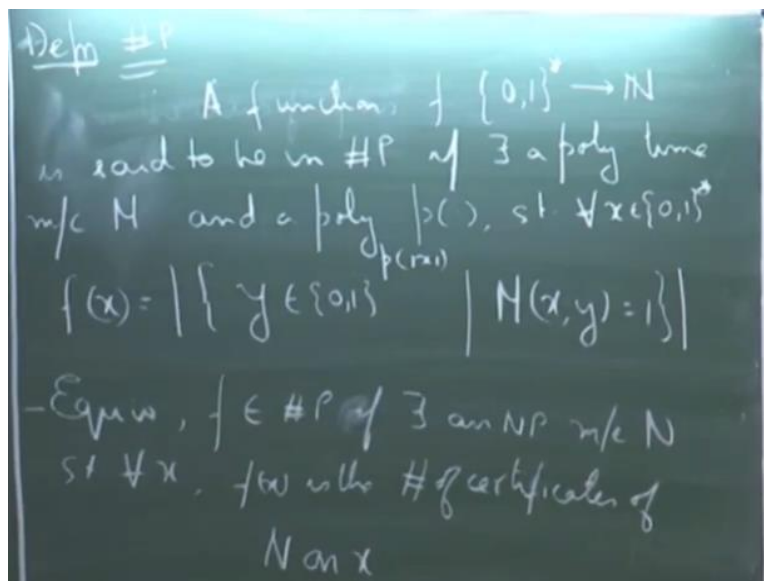 Defn #P
A function f {0,1}* → N
is said to be in #P if ∃ a poly time
m/c M and a poly p(), st. ∀x∈{0,1}*
f(x) = |{ y ∈ {0,1}^p(|x|) | M(x,y) = 1}|
- Equiv, f ∈ #P if ∃ an NP m/c N
st ∀x, f(x) is the # of certificates of
N on x